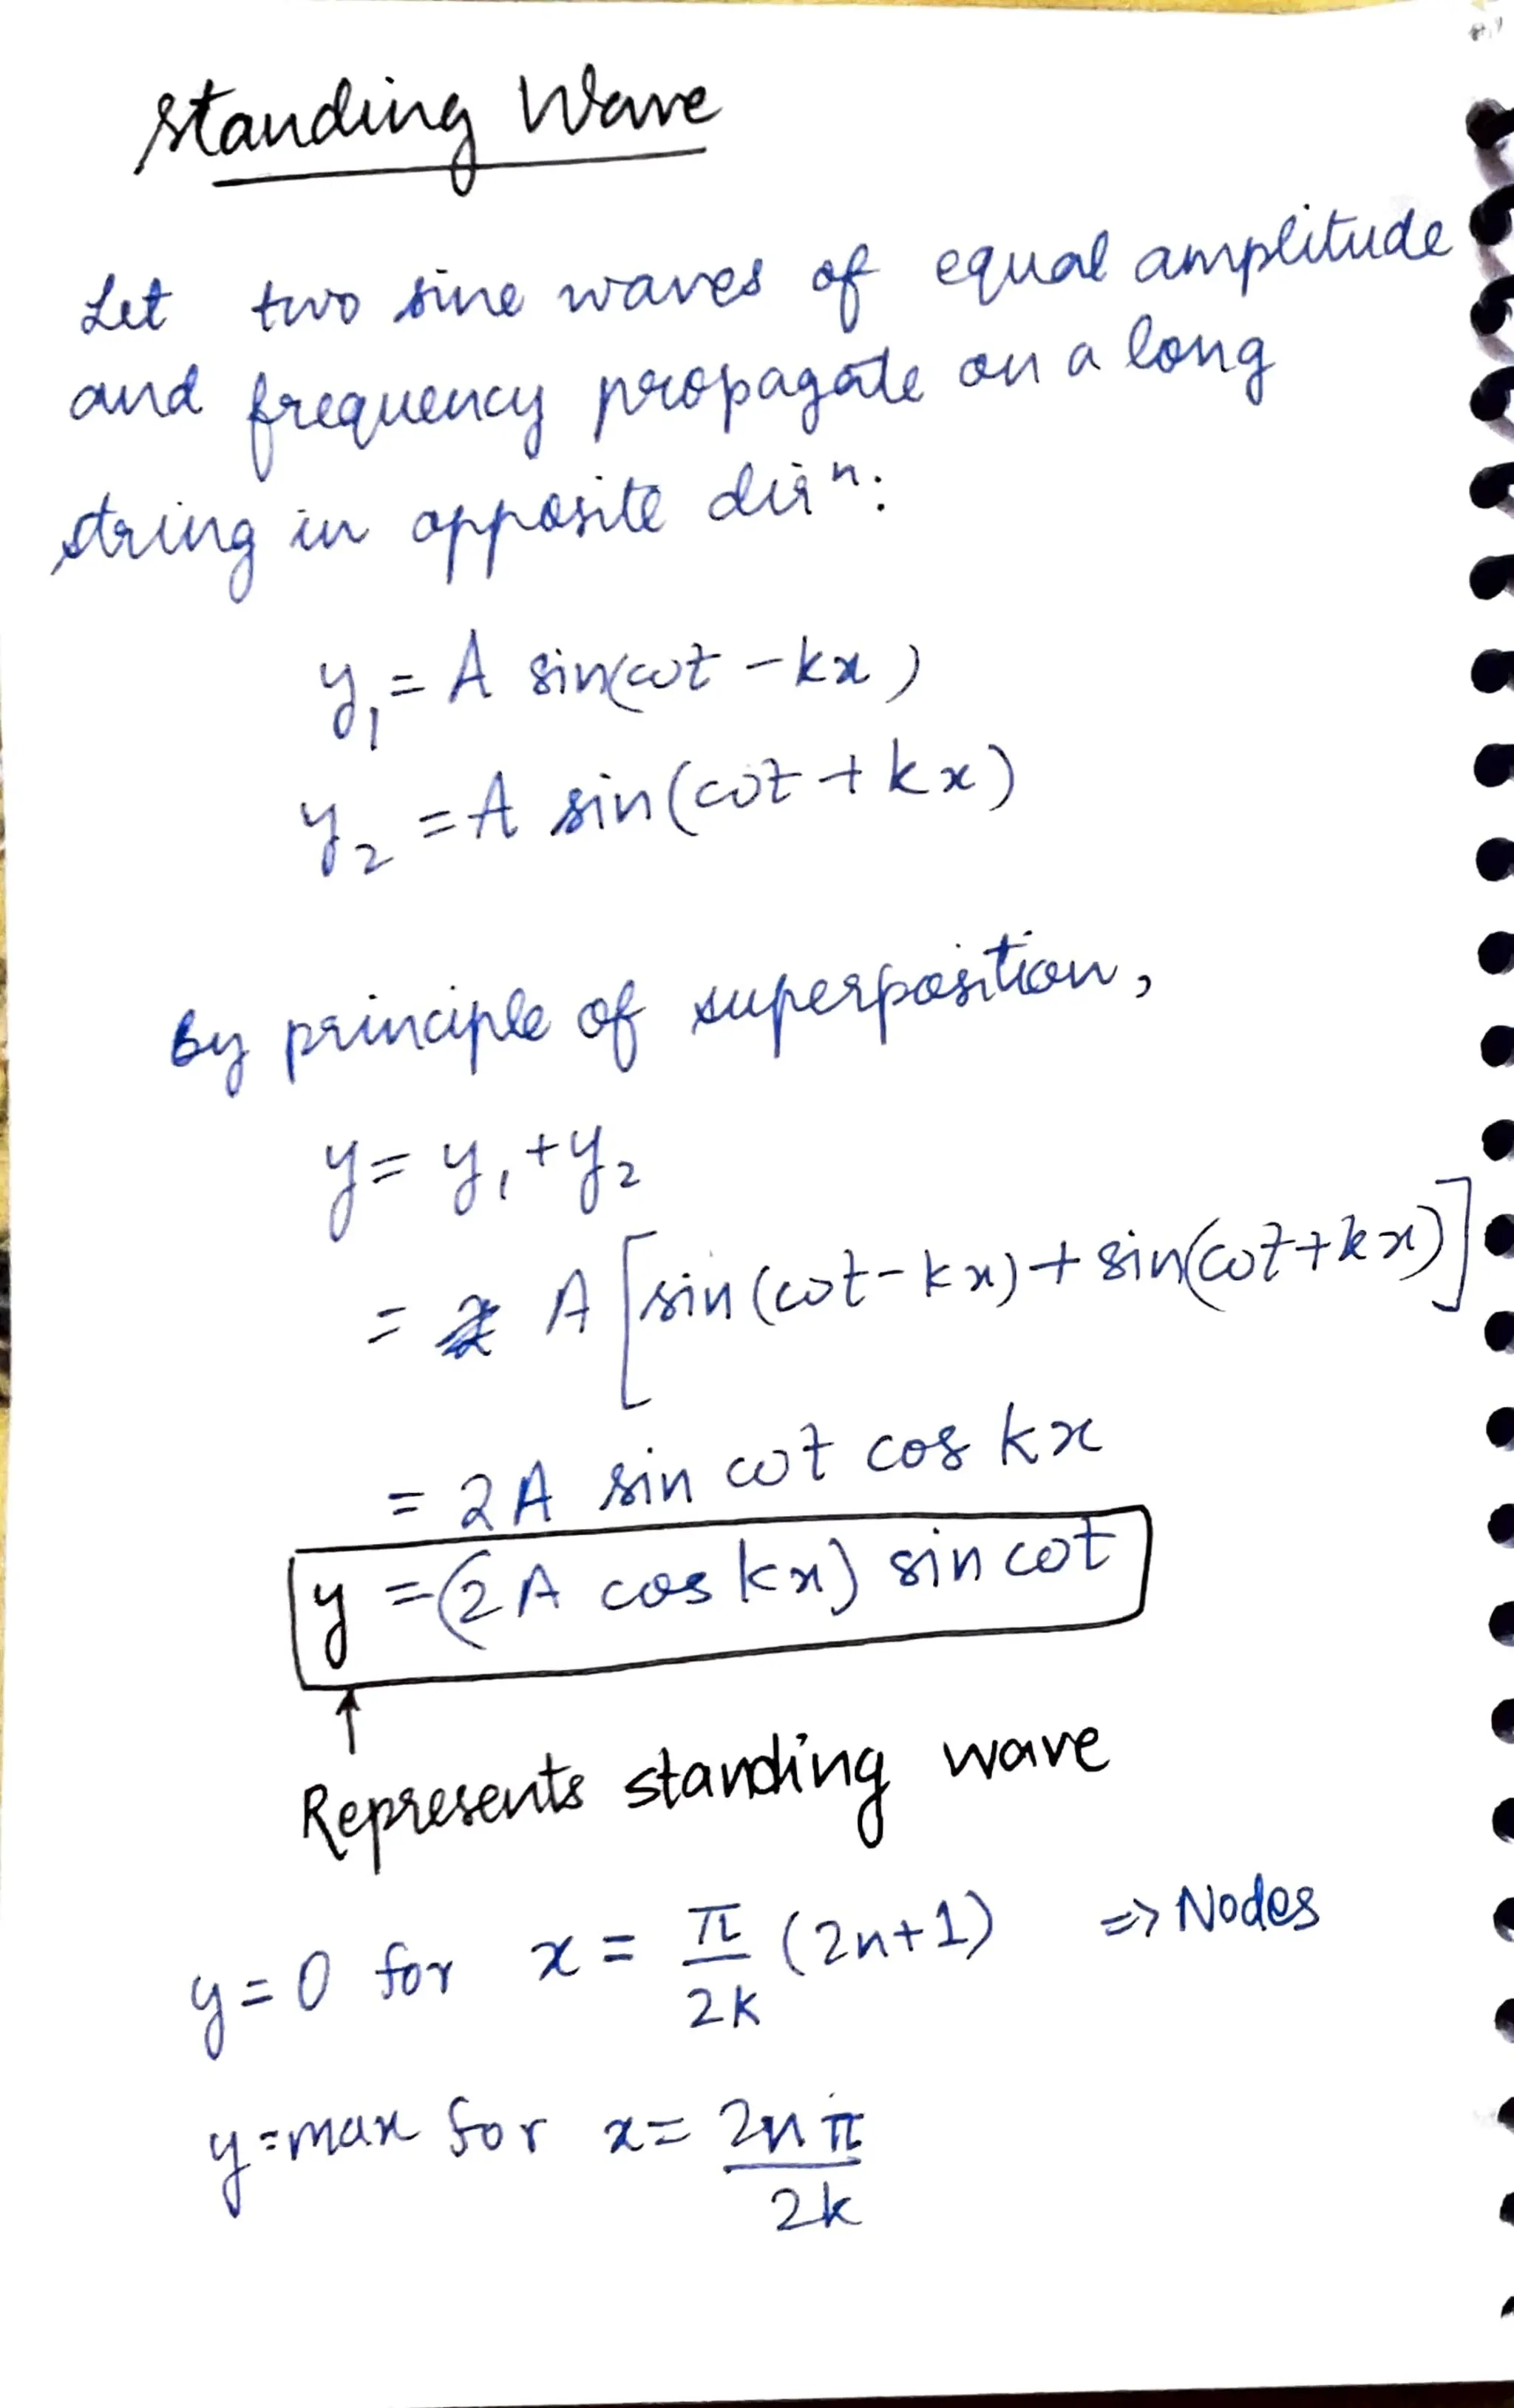 Standing Wave
Let two sine waves of equal amplitude
and frequency propagate on a long
string in opposite dirⁿ:
y₁ = A sin(ωt - kx)
y₂ = A sin(ωt + kx)
By principle of superposition,
y = y₁ + y₂
= A [sin(ωt - kx) + sin(ωt + kx)]
= 2A sin ωt cos kx
y = (2A cos kx) sin ωt
↑
Represents standing wave
y = 0 for x = π/2k (2n+1) ⇒ Nodes
y = max for x = 2nπ/2k